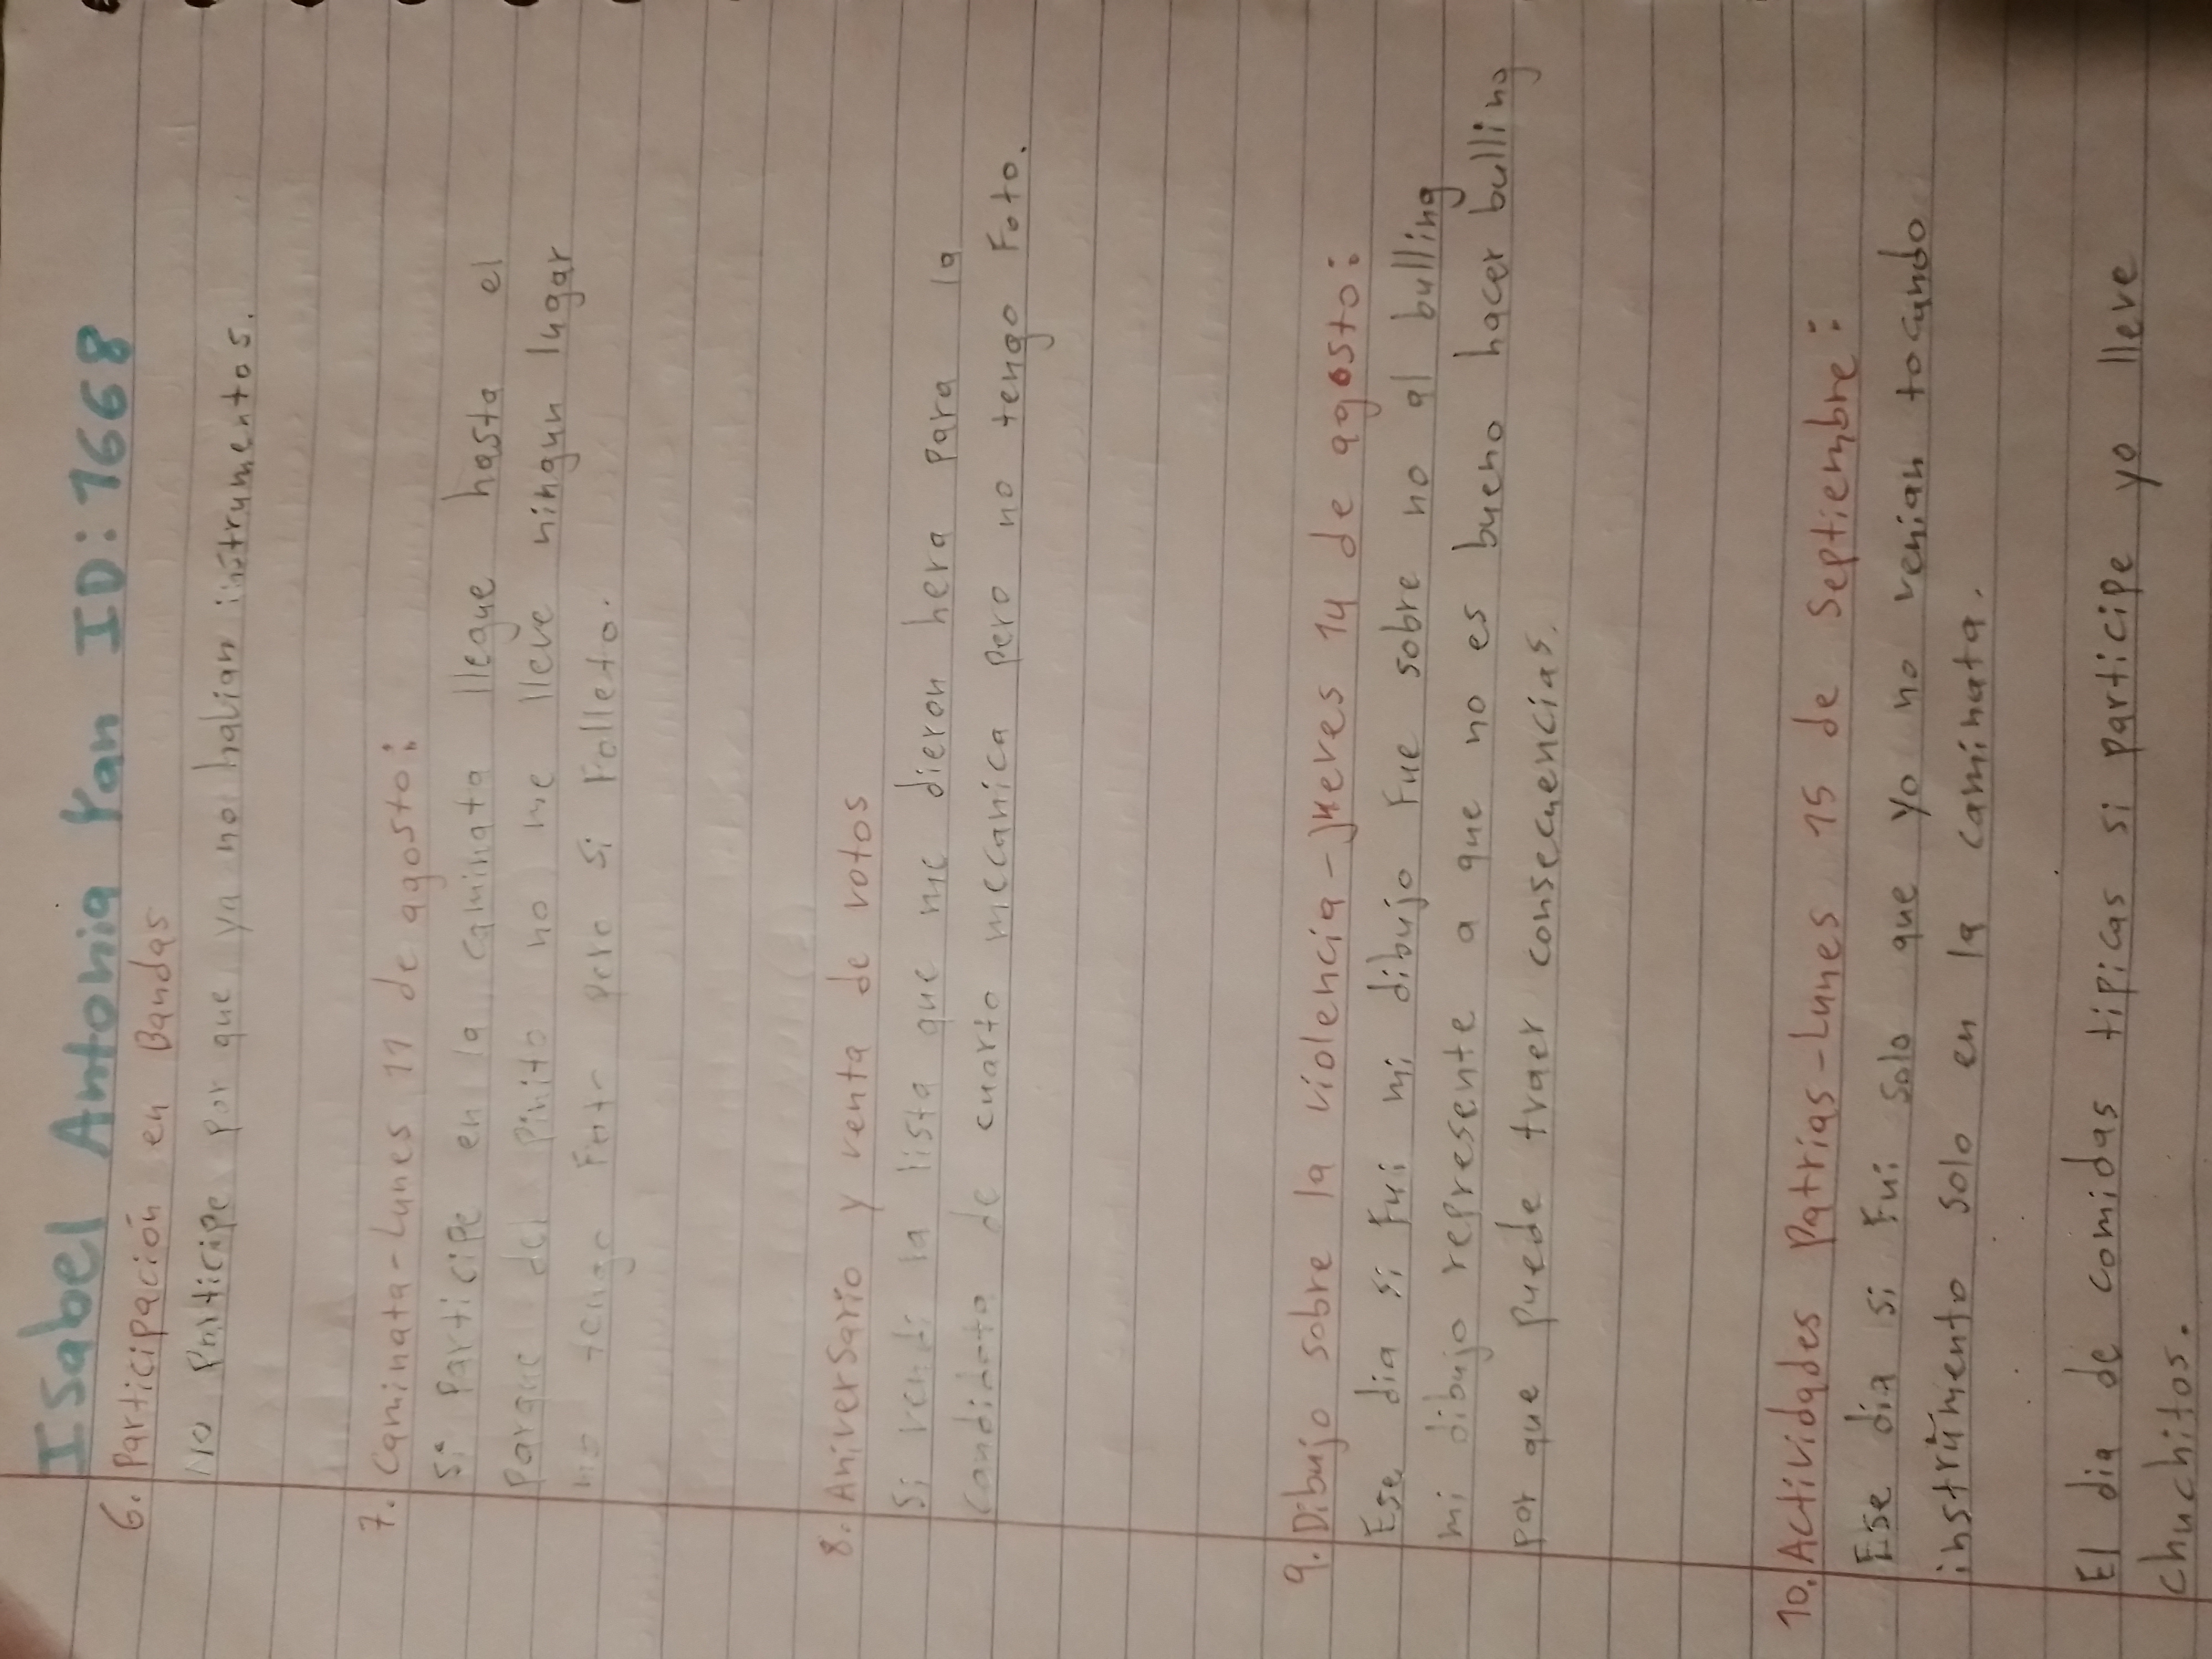 Isabel Antonia Yan ID: 1668
6. Participación en Bandas
No Participe por que ya no habian instrumentos.
7. Caminata-Lunes 11 de agosto:
Si Participe en la caminata llegue hasta el
Parque del Pinito no me lleve ningun lugar
no tengo Foto pero si Folleto.
8. Aniversario y venta de votos
Si vendi la lista que me dieron hera para la
Candidata de cuarto mecanica pero no tengo Foto.
9. Dibujo sobre la violencia-jueves 14 de agosto:
Ese dia si Fui mi dibujo Fue sobre no al bulling
mi dibujo represente a que no es bueno hacer bulling
por que puede traer consecuencias.
10. Actividades Patrias-Lunes 15 de Septiembre:
Ese dia si Fui solo que yo no venian tocando
instrumento solo en la caminata.
El dia de comidas tipicas si participe yo lleve
chuchitos.